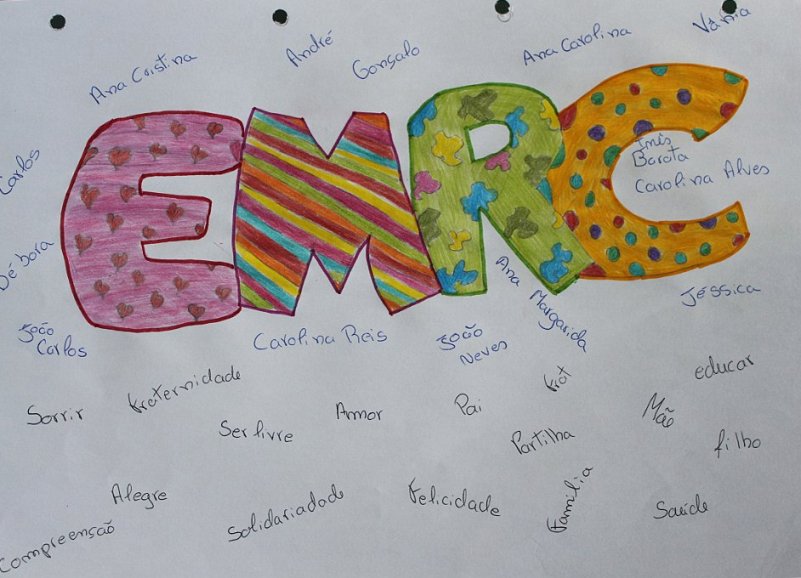 Ana Cristina
André
Gonçalo
Ana Carolina
Vânia
EMRC
Carlos
Inês
Barata
Carolina Alves
Débora
João
Carlos
Carolina Reis
João
Neves
Ana Margarida
Jéssica
Sorrir
Fraternidade
Ser livre
Amor
Pai
Mãe
educar
Partilha
filho
Alegre
Solidariadade
Felicidade
Família
Saúde
Compreensão